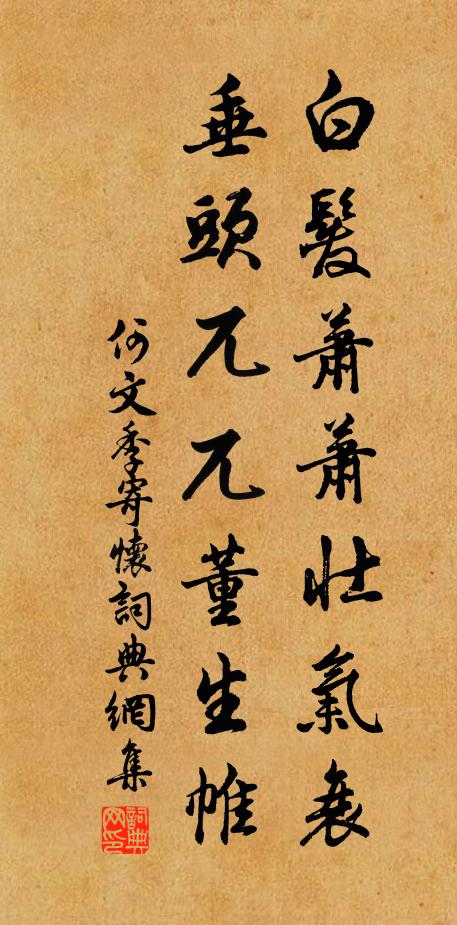 白髮蕭蕭壯氣衰
垂頭兀兀董生帷
何文季寄懷詞典網集
詞典网印